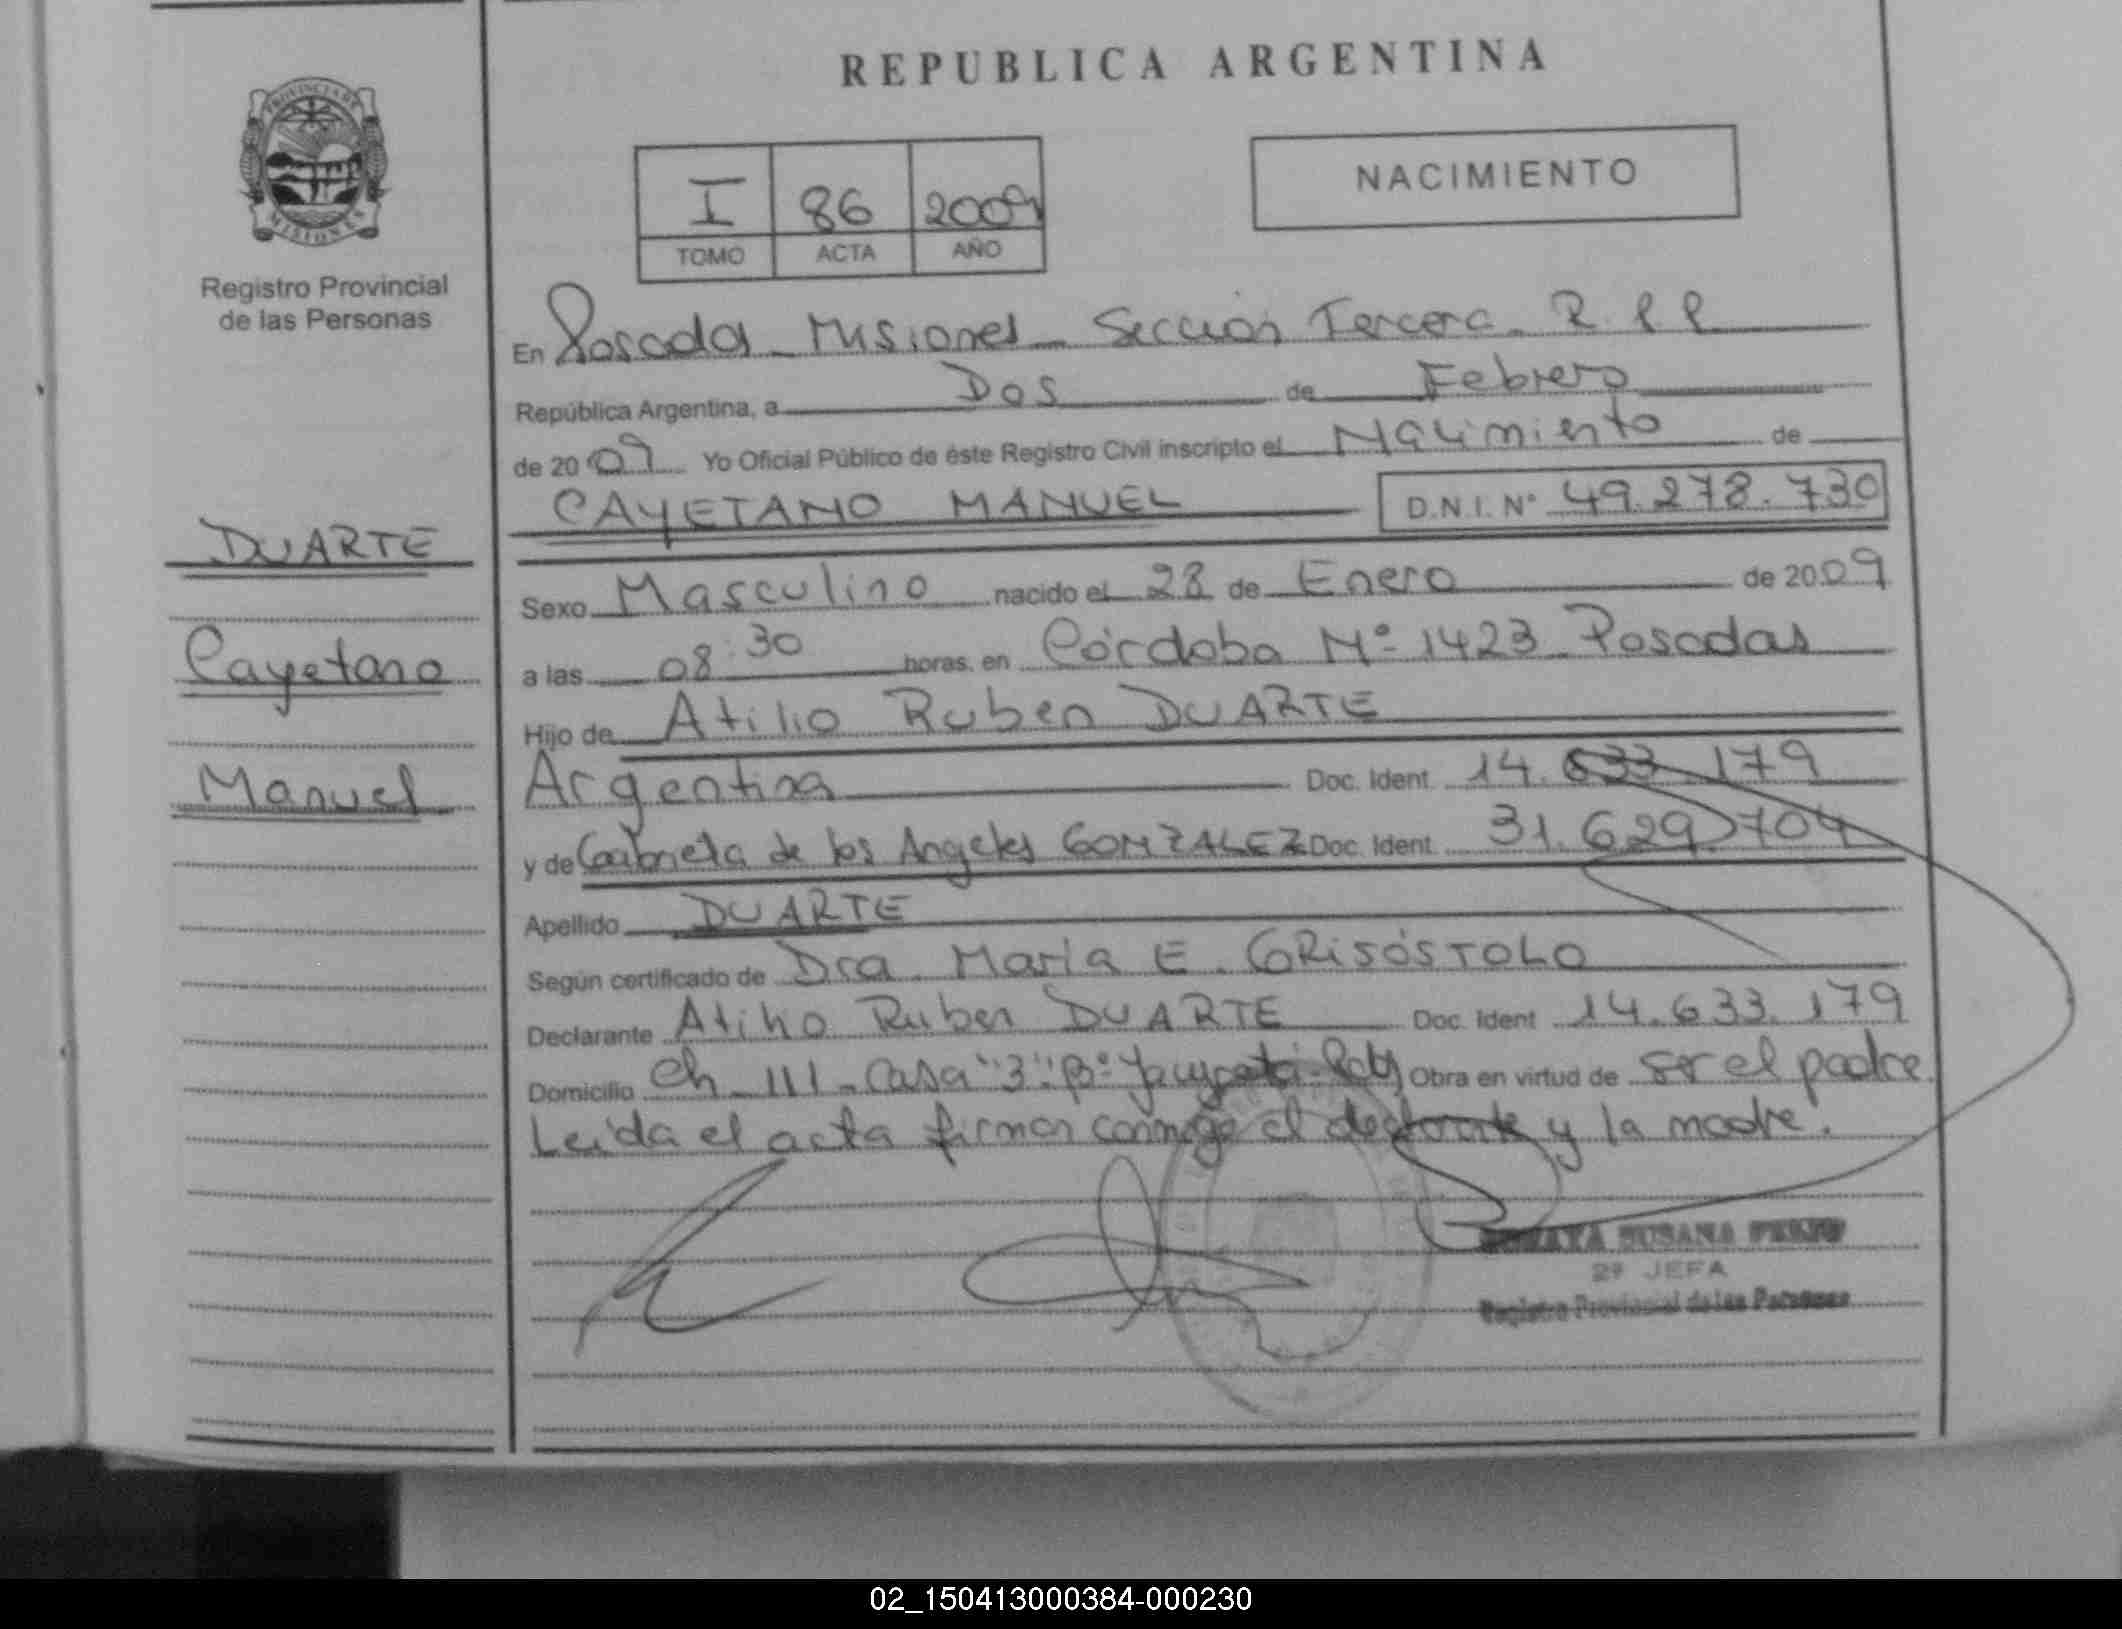 REPUBLICA ARGENTINA
PROVINCIA DE
MISIONES
Registro Provincial
de las Personas
I 86 2009
TOMO ACTA AÑO
NACIMIENTO
En Posadas Misiones Sección Tercera R.P.P
República Argentina, a Dos de Febrero
de 2009 Yo Oficial Público de éste Registro Civil inscripto el Nacimiento de
CAYETANO MANUEL D.N.I. N° 49.278.730
DUARTE
Cayetano
Manuel
Sexo Masculino nacido el 28 de Enero de 2009
a las 08:30 horas. en Córdoba N° 1423 Posadas
Hijo de Atilio Ruben DUARTE
Argentina Doc. Ident. 14.633.179
y de Gabriela de los Angeles GONZALEZ Doc. Ident. 31.629.704
Apellido DUARTE
Según certificado de Dra. María E. GRISÓSTOLO
Declarante Atilio Ruben DUARTE Doc. Ident 14.633.179
Domicilio Ch III - Casa "3" B° Obra en virtud de ser el padre
Leída el acta firman conmigo el declarante y la madre.
SUSANA
2º JEFA
Registro Provincial de las Personas
02_150413000384-000230